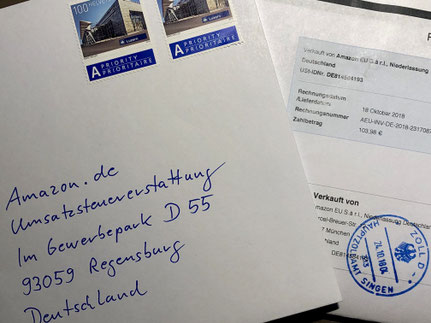 100 HELV
A PRIORITY
PRIORITAIRE
A PRIORITY
PRIORITAIRE
Amazon.de
Umsatzsteuererstattung
Im Gewerbepark D 55
93059 Regensburg
Deutschland
Verkauft von Amazon EU S.à r.l., Niederlassung
Deutschland
USt-IDNr. DE814584193
Rechnungsdatum
/Lieferdatum 18 Oktober 2018
Rechnungsnummer AEU-INV-DE-2018-2317087
Zahlbetrag 103,98 €
Verkauft von
Amazon EU S.à r.l., Niederlassung Deutschland
München
ZOLL D
24.10.18
HAUPTZOLLAMT SINGEN